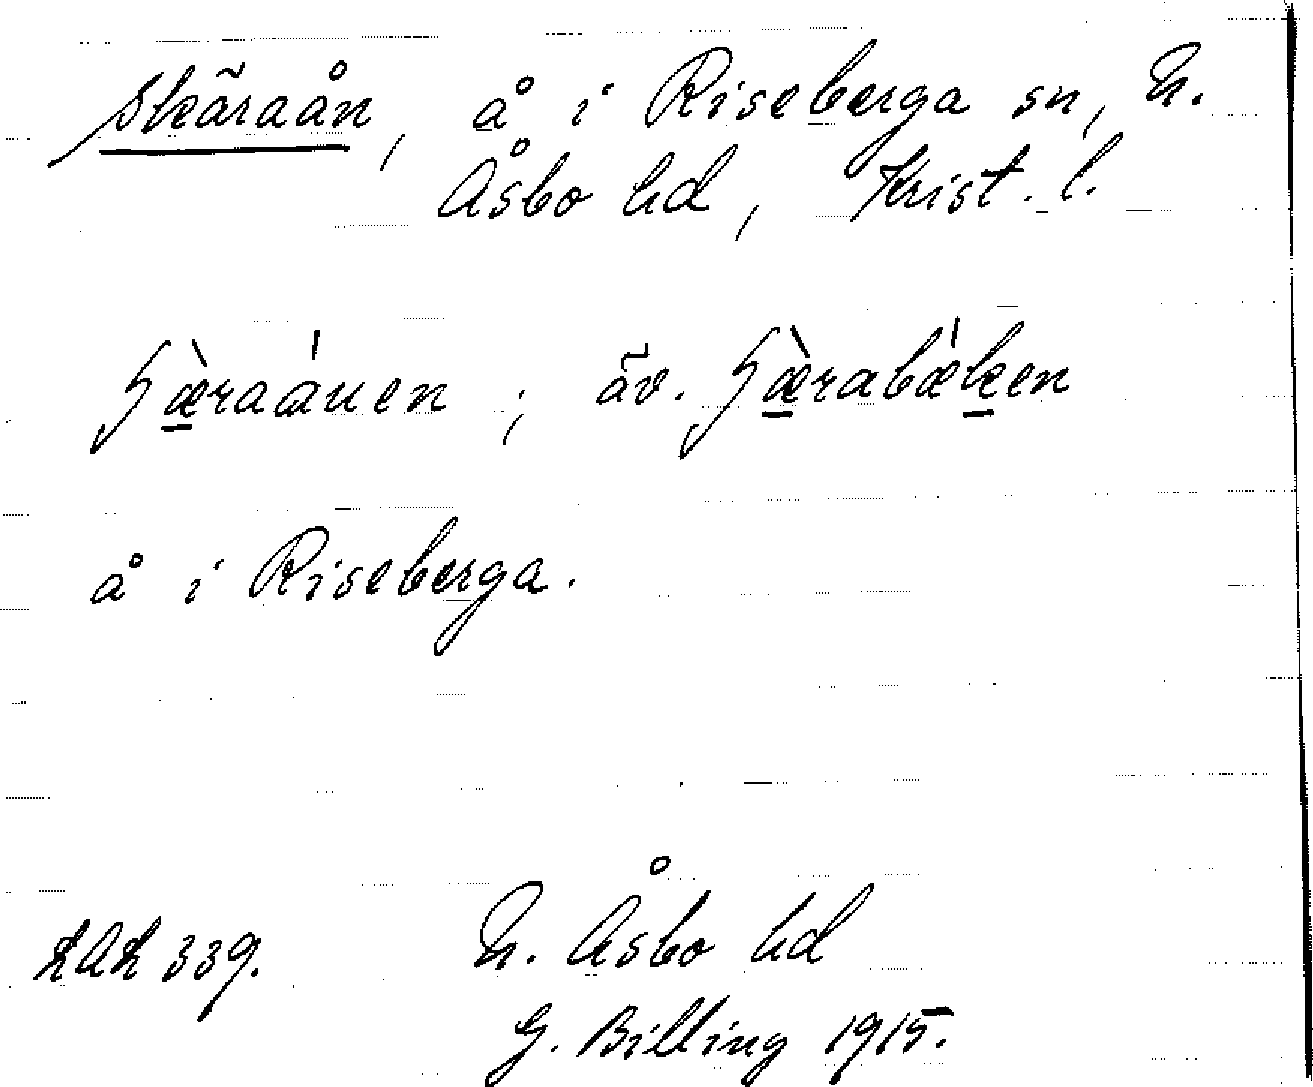 Skäraån, å i Riseberga sn, N.
Åsbo hd, Krist. l.
ʃæ̀raáuen ; äv. ʃæ̀rabǽken
å i Riseberga.
LAL 339. N. Åsbo hd
G. Billing 1915.